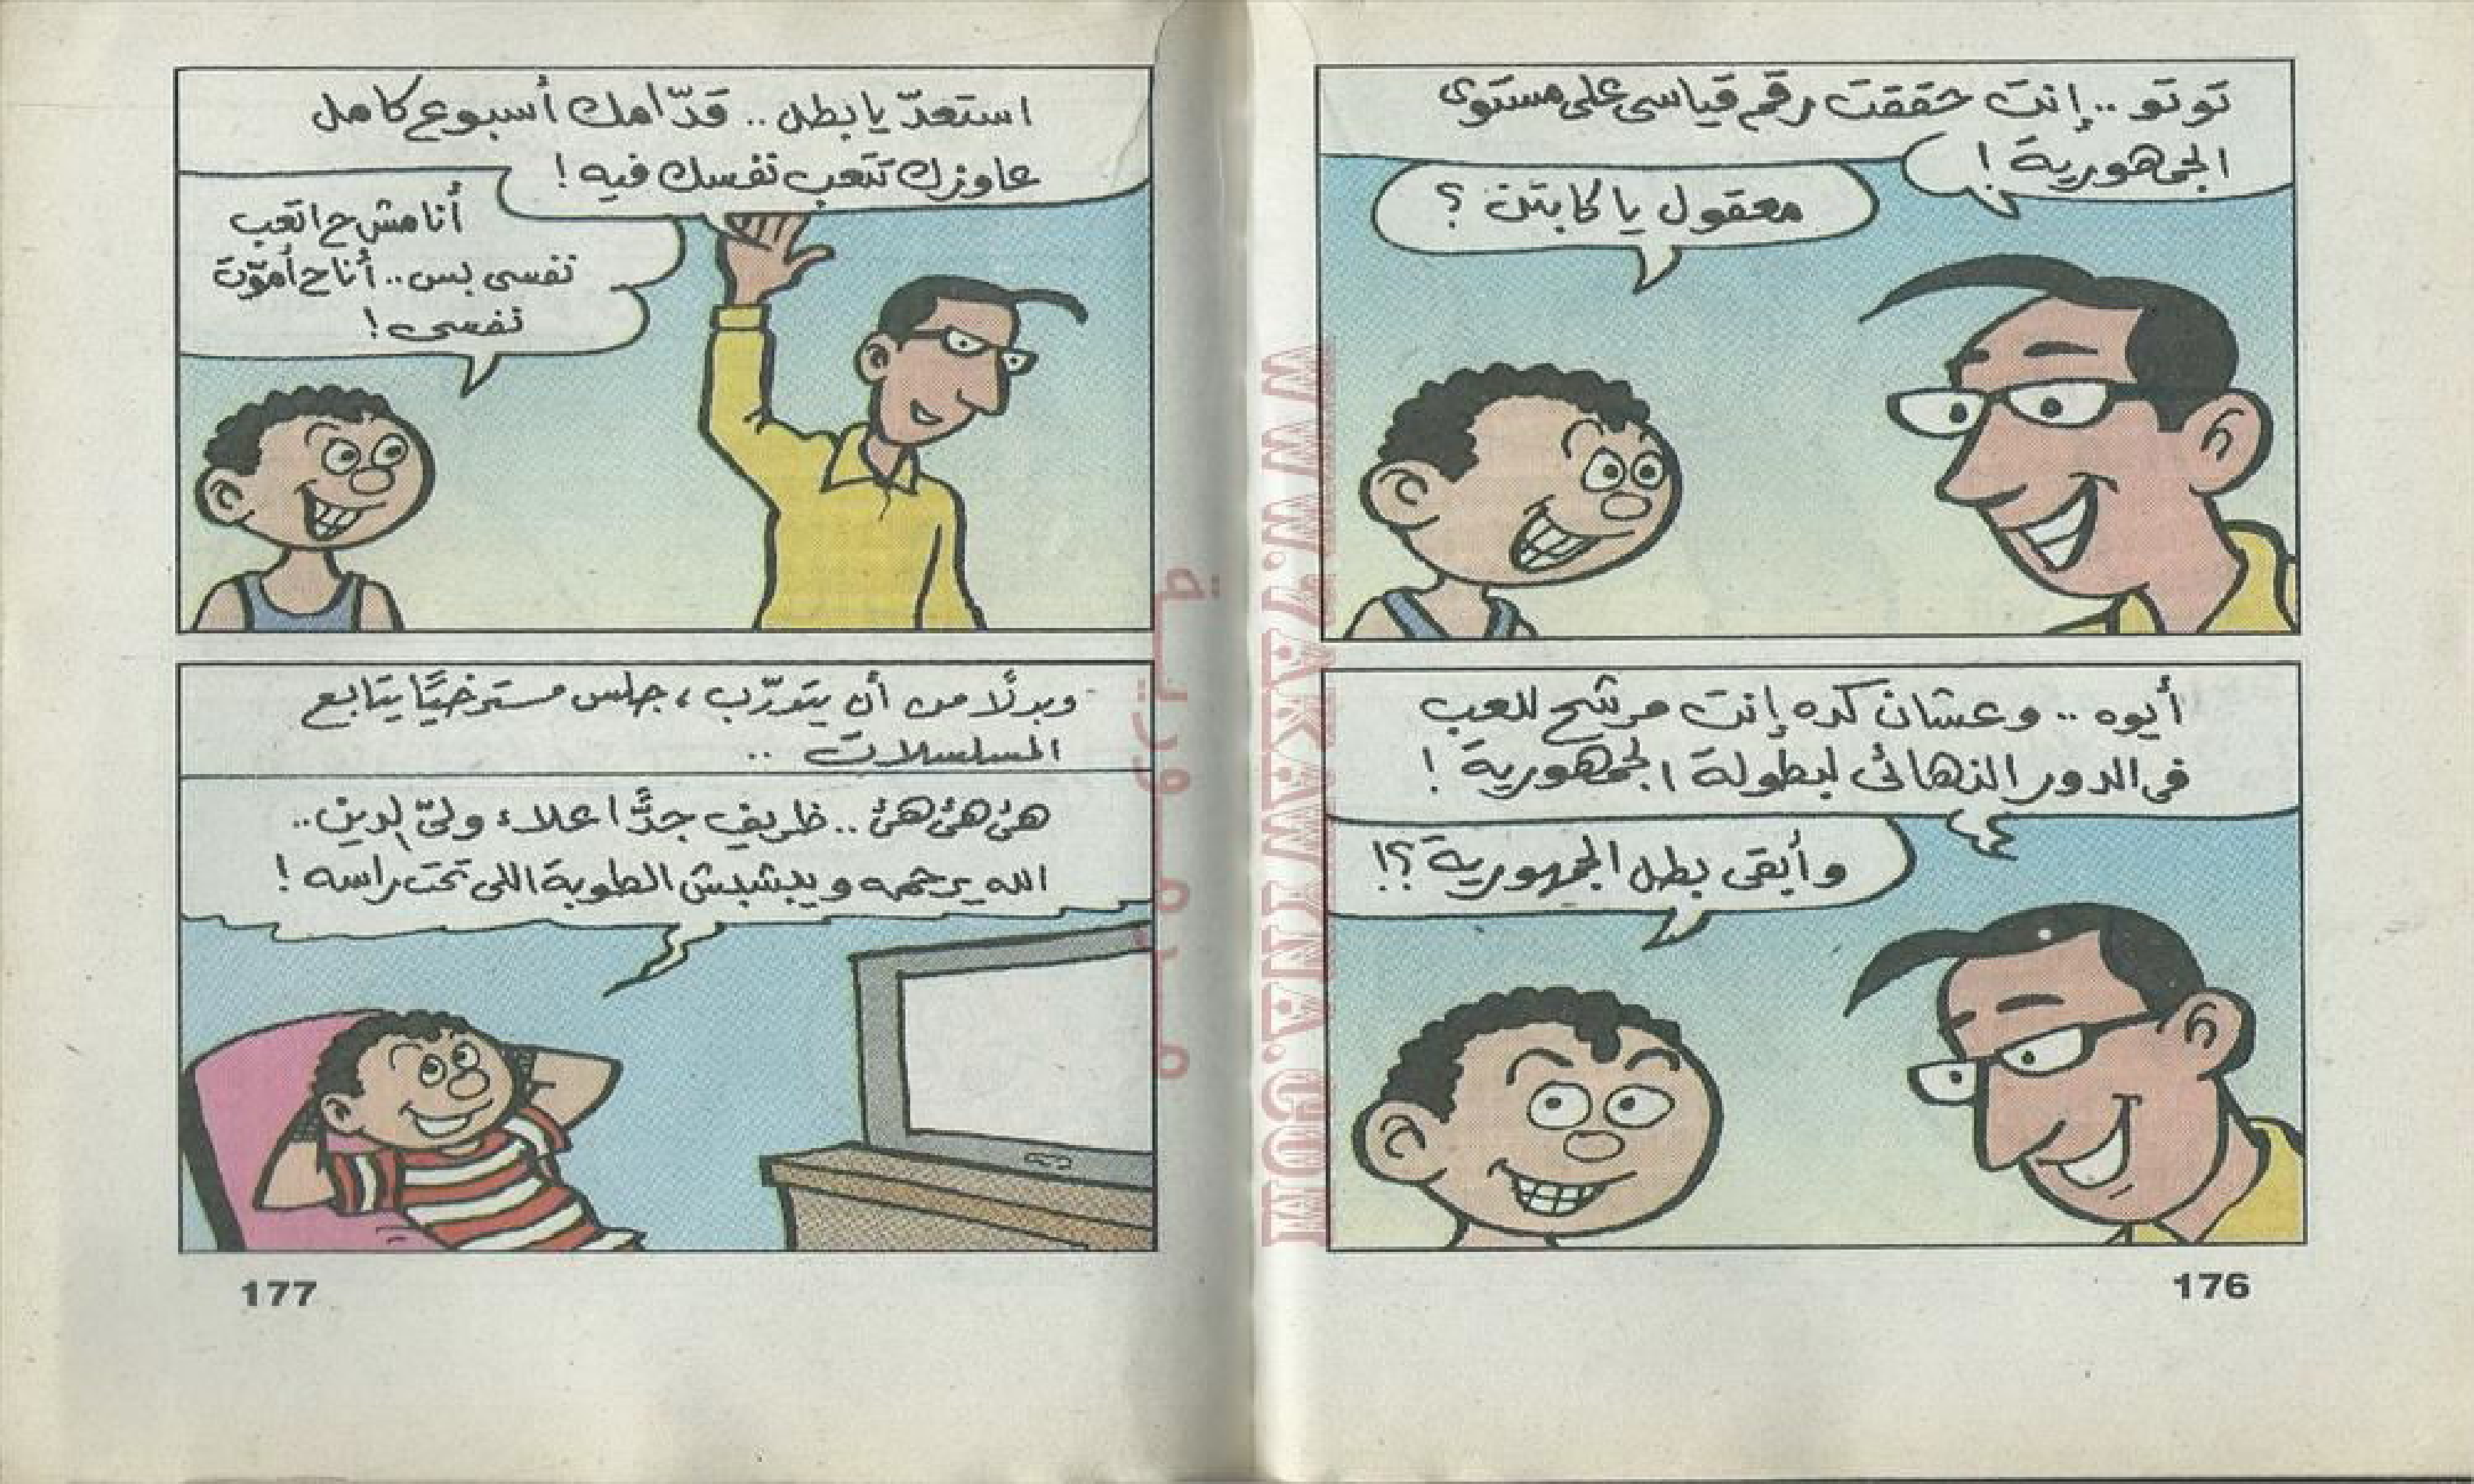 توتو .. إنت حققت رقم قياسى على مستوى
الجمهورية !
معقول يا كابتن ؟
أيوه .. وعشان كده إنت مرشح للعب
فى الدور النهائى لبطولة الجمهورية !
وأبقى بطل الجمهورية ؟!
176
استعدّ يا بطل .. قدّامك أسبوع كامل
عاوزك تتعب نفسك فيه !
أنا مش ح اتعب
نفسى بس .. أنا ح أموّت
نفسى !
وبدلًا من أن يتدرّب ، جلس مسترخيًا يتابع
المسلسلات ..
هئ هئ هئ .. ظريف جدًّا علاء ولىّ الدين ..
الله يرحمه ويبشبش الطوبة اللى تحت راسه !
177
WWW.ARABAWINNA.COM